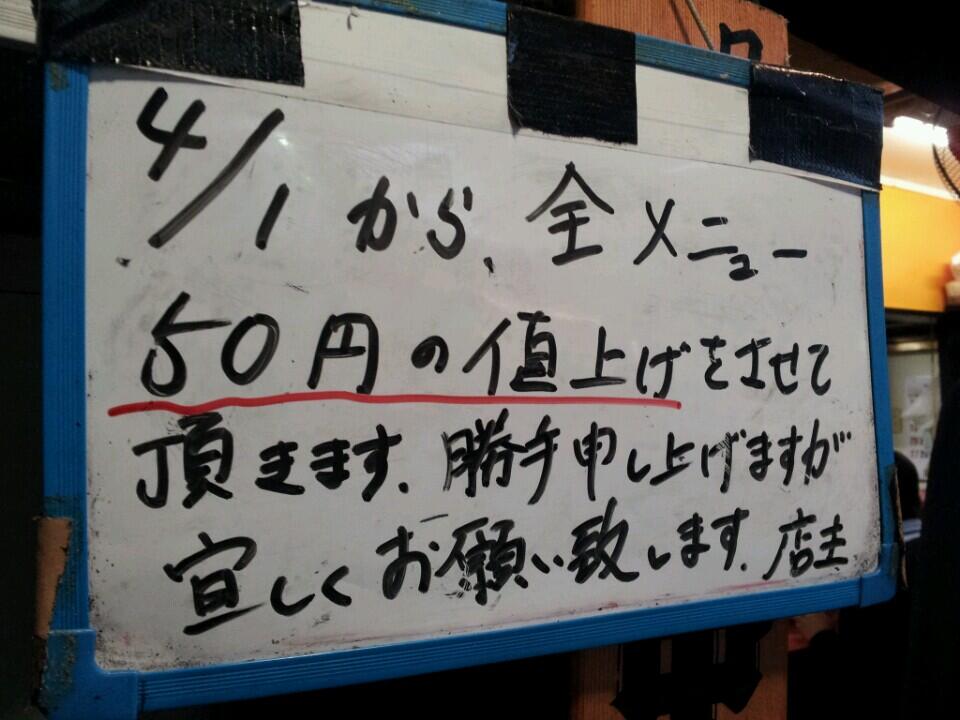 4/1から、全メニュー
50円の値上げをさせて
頂きます、勝手申し上げますが
宜しくお願い致します、店主